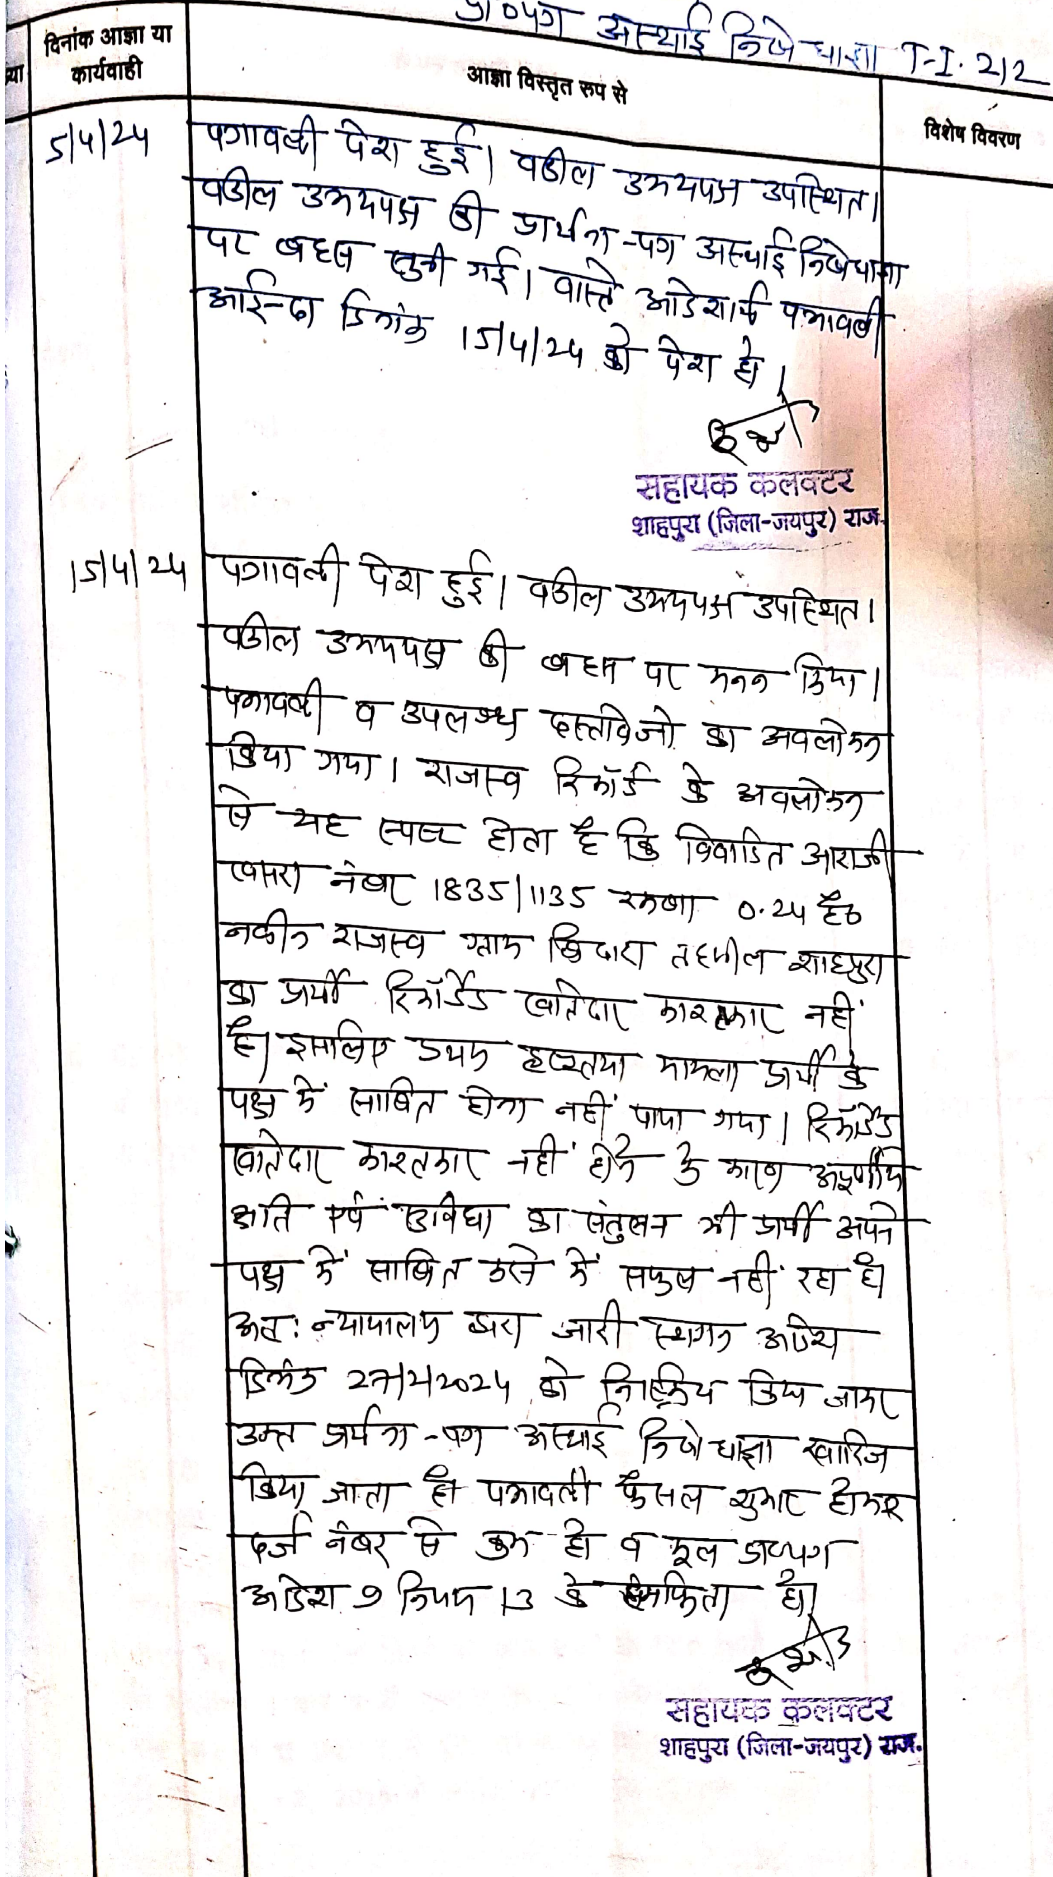 प्रा०पत्र अस्थाई निषेधाज्ञा T-I. 212
दिनांक आज्ञा या
कार्यवाही
आज्ञा विस्तृत रुप से
विशेष विवरण
5/4/24 पत्रावली पेश हुई। वकील उभयपक्ष उपस्थित।
वकील उभयपक्ष की प्रार्थना-पत्र अस्थाई निषेधाज्ञा
पर बहस सुनी गई। वास्ते आदेशार्थ पत्रावली
आईन्दा दिनांक 15/4/24 को पेश हो।
सहायक कलक्टर
शाहपुरा (जिला-जयपुर) राज.
15/4/24 पत्रावली पेश हुई। वकील उभयपक्ष उपस्थित।
वकील उभयपक्ष की बहस पर मनन किया।
पत्रावली व उपलब्ध दस्तावेजो का अवलोकन
किया गया। राजस्व रिकॉर्ड के अवलोकन
से यह स्पष्ट होता है कि विवादित आराजी
खसरा नंबर 1835/1135 रकबा 0.24 है०
राजस्व ग्राम तहसील शाहपुरा
का प्रार्थी रिकॉर्डेड खातेदार काश्तकार नहीं
है। इसलिए प्रथम दृष्टतया मामला प्रार्थी के
पक्ष में साबित होना नहीं पाया गया। रिकॉर्डेड
खातेदार काश्तकार नहीं होने के कारण अपूर्णीय
क्षति एवं सुविधा का संतुलन भी प्रार्थी अपने
पक्ष में साबित करने में सफल नहीं रहा है।
अतः न्यायालय द्वारा जारी स्थगन आदेश
दिनांक 27/2/2024 को निष्क्रिय किया जाकर
उक्त प्रार्थना-पत्र अस्थाई निषेधाज्ञा खारिज
किया जाता है। पत्रावली फैसल शुमार होकर
दर्ज नंबर से कम हो व मूल प्रा०पत्र
आदेश 9 नियम 13 के हो।
सहायक कलक्टर
शाहपुरा (जिला-जयपुर) राज.